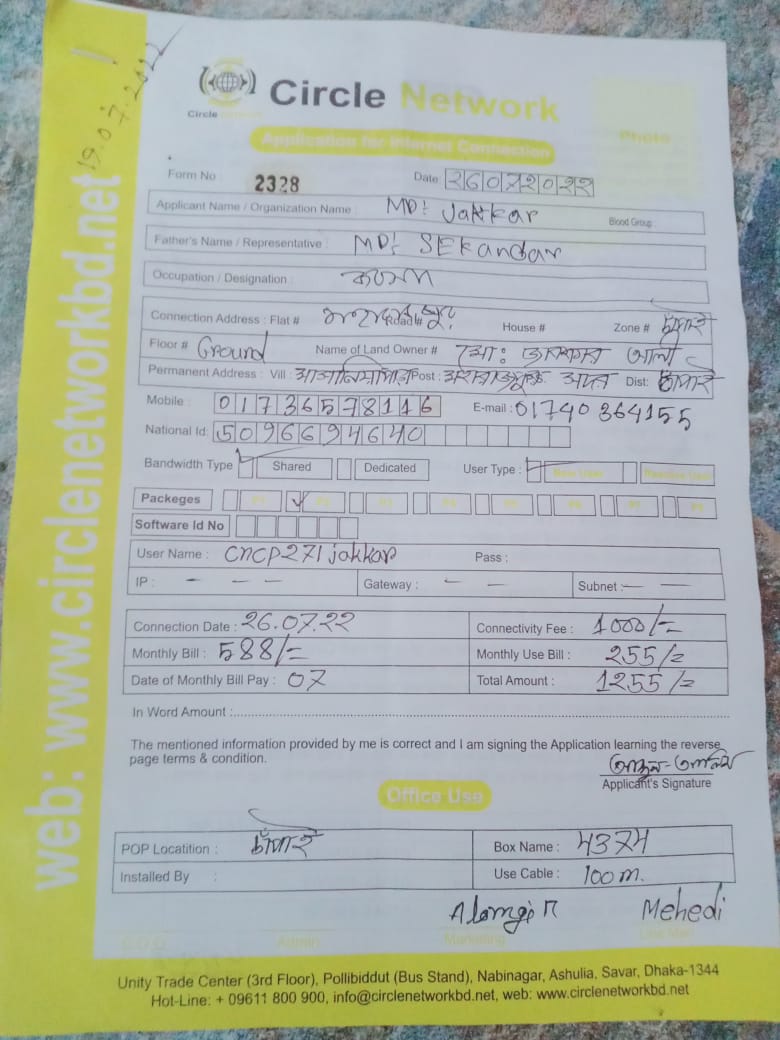 19.07.2022
Circle Network
Circle Network
Application for Internet Connection
Photo
Form No : 2328 Date: 26072022
Applicant Name / Organization Name : MD: Jakkar Blood Group :
Father's Name / Representative : MD: SEKandar
Occupation / Designation :
Connection Address : Flat # Road # House # Zone #
Floor # Ground Name of Land Owner # মো:
Permanent Address : Vill : Post : Dist:
Mobile : 01736578116 E-mail : 01740 364155
National Id: 5096694640
Bandwidth Type Shared Dedicated User Type : New User Reactive User
Packeges P1 P2 P3 P4 P5 P6 P7 P8
Software Id No
User Name : cncp271jakkar Pass :
IP : — — Gateway : — — Subnet: — —
Connection Date : 26.07.22 Connectivity Fee : 1000/=
Monthly Bill : 588/= Monthly Use Bill : 255/=
Date of Monthly Bill Pay : 07 Total Amount : 1255/=
In Word Amount :
The mentioned information provided by me is correct and I am signing the Application learning the reverse
page terms & condition.
Applicant's Signature
Office Use
POP Locatition : Box Name : 4374
Installed By : Use Cable : 100 m.
Alamgir Mehedi
Admin Marketing Line Man
Unity Trade Center (3rd Floor), Pollibiddut (Bus Stand), Nabinagar, Ashulia, Savar, Dhaka-1344
Hot-Line: + 09611 800 900, info@circlenetworkbd.net, web: www.circlenetworkbd.net
web: www.circlenetworkbd.net